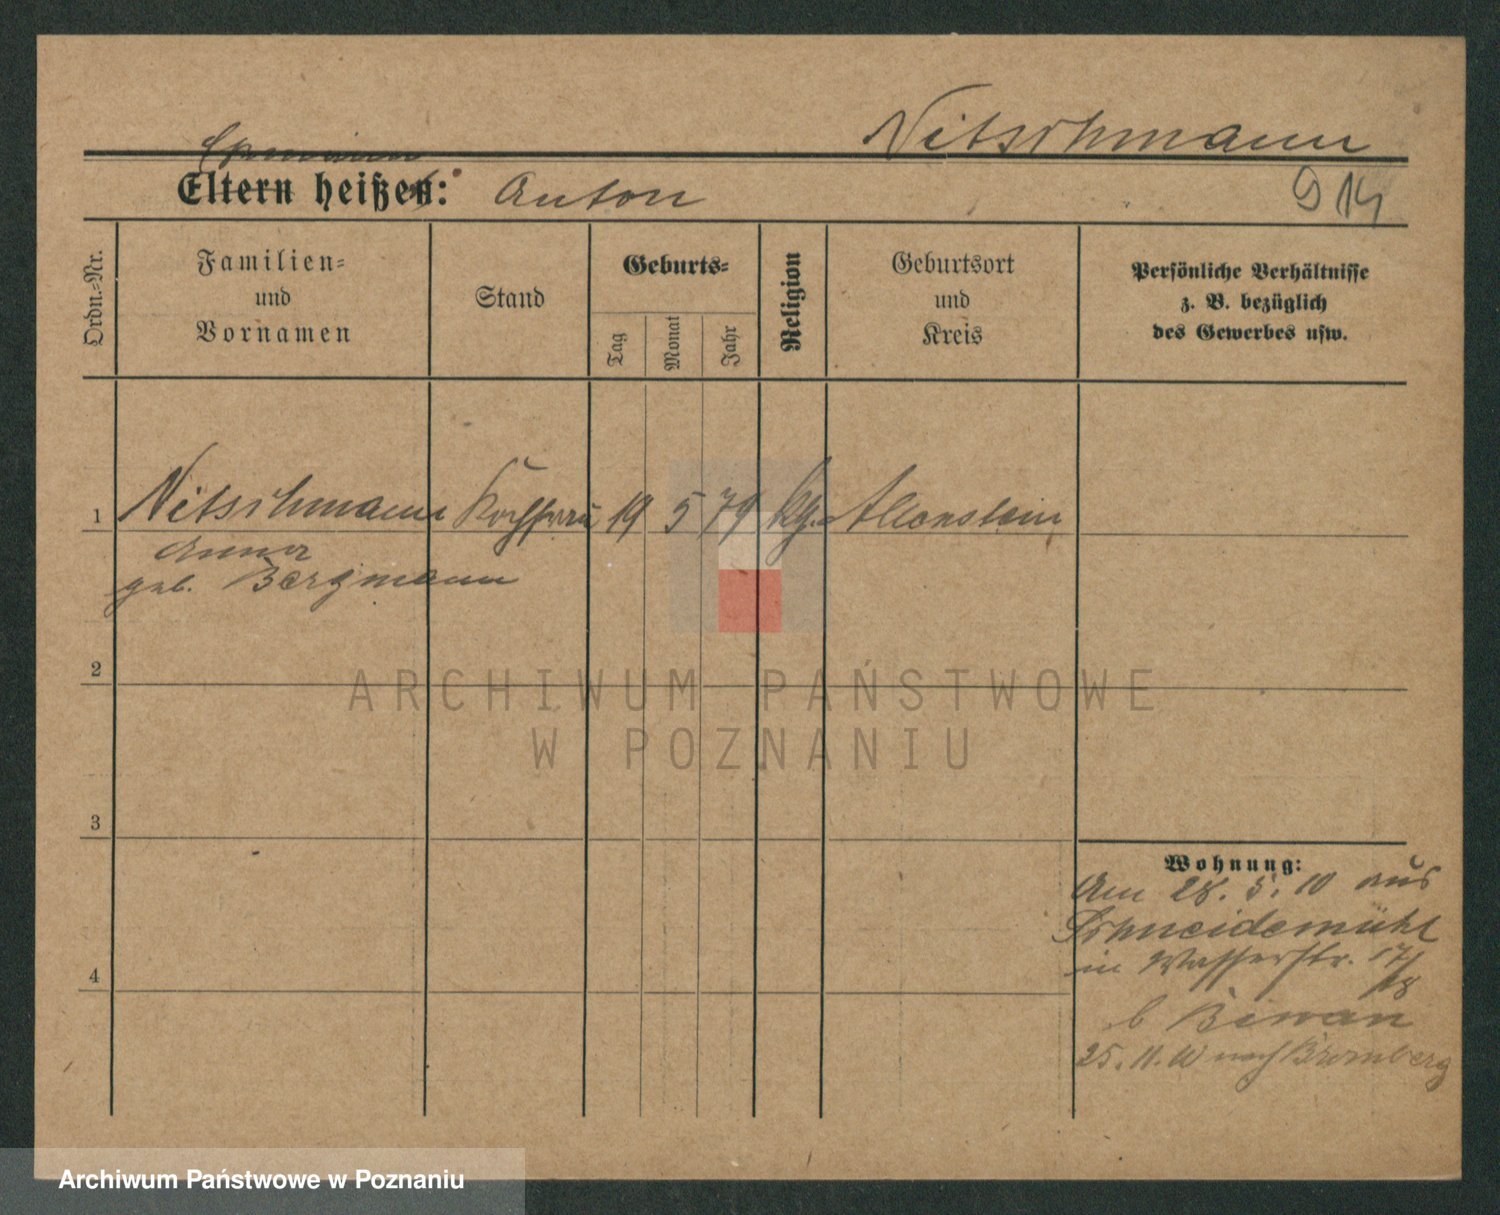 Nitschmann
Ehemann
Eltern heißen: Anton
914
Ordn.-Nr.
Familien-
und
Vornamen
Stand
Geburts-
Tag
Monat
Jahr
Religion
Geburtsort
und
Kreis
Persönliche Verhältnisse
z. B. bezüglich
des Gewerbes usw.
1 Nitschmann Kochfrau 19 5 79 kg. Allenstein
Anna
geb. Bergmann
2
3
4
ARCHIWUM PAŃSTWOWE
W POZNANIU
Wohnung:
Am 28. 5. 10 aus
Schneidemühl
in Wasserstr. 17/18
b
25. 11. 10 nach Bromberg
Archiwum Państwowe w Poznaniu